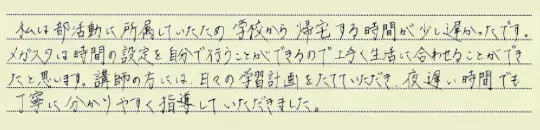 私は部活動に所属していたため学校から帰宅する時間が少し遅かったです。
メガスタは時間の設定を自分で行うことができるので上手く生活に合わせることができ
たと思います。講師の方には、日々の学習計画をたてていただき、夜遅い時間でも
丁寧に分かりやすく指導していただきました。